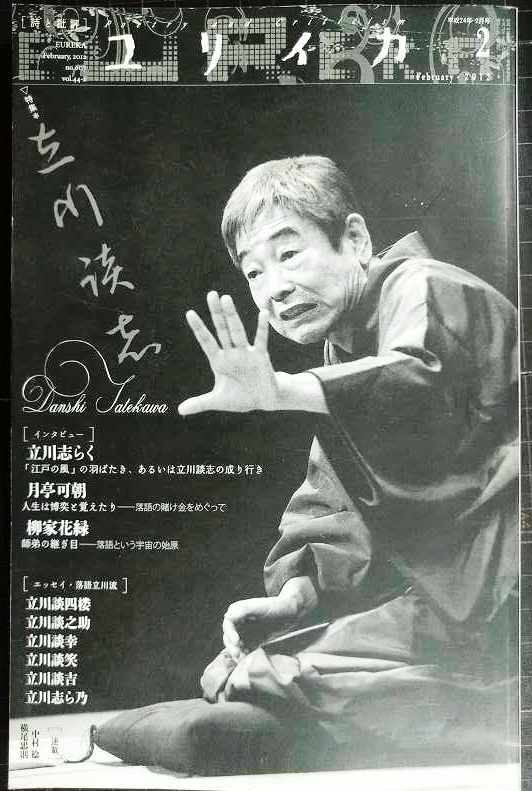 [詩と批評]
EUREKA
February, 2012
vol.44-2
ユリイカ
平成24年・2月号
2
February・2012
▽特集*
立川談志
Danshi Tatekawa
[インタビュー]
立川志らく
「江戸の風」の羽ばたき、あるいは立川談志の成り行き
月亭可朝
人生は博奕と覚えたり——落語の賭け金をめぐって
柳家花緑
師弟の継ぎ目——落語という宇宙の始原
[エッセイ・落語立川流]
立川談四楼
立川談之助
立川談幸
立川談笑
立川談吉
立川志ら乃
連載
中村稔
横尾忠則